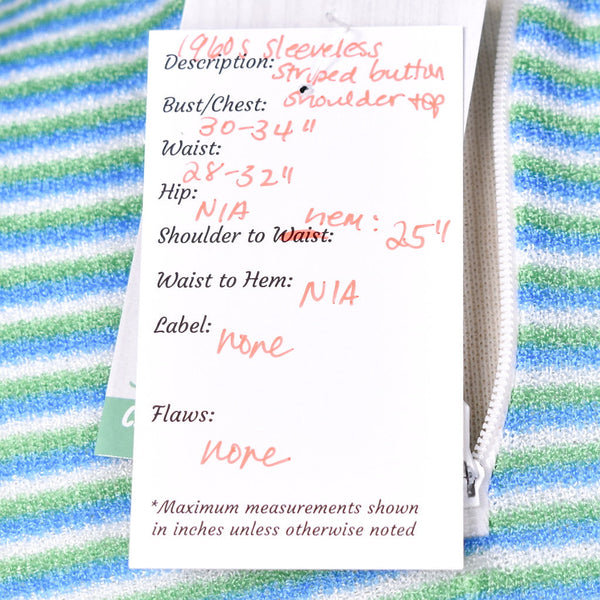 1960s sleeveless
Description: striped button
Bust/Chest: shoulder top
30-34"
Waist:
28-32"
Hip:
N/A hem:
Shoulder to Waist: 25"
Waist to Hem: N/A
Label: none
Flaws:
none
*Maximum measurements shown
in inches unless otherwise noted